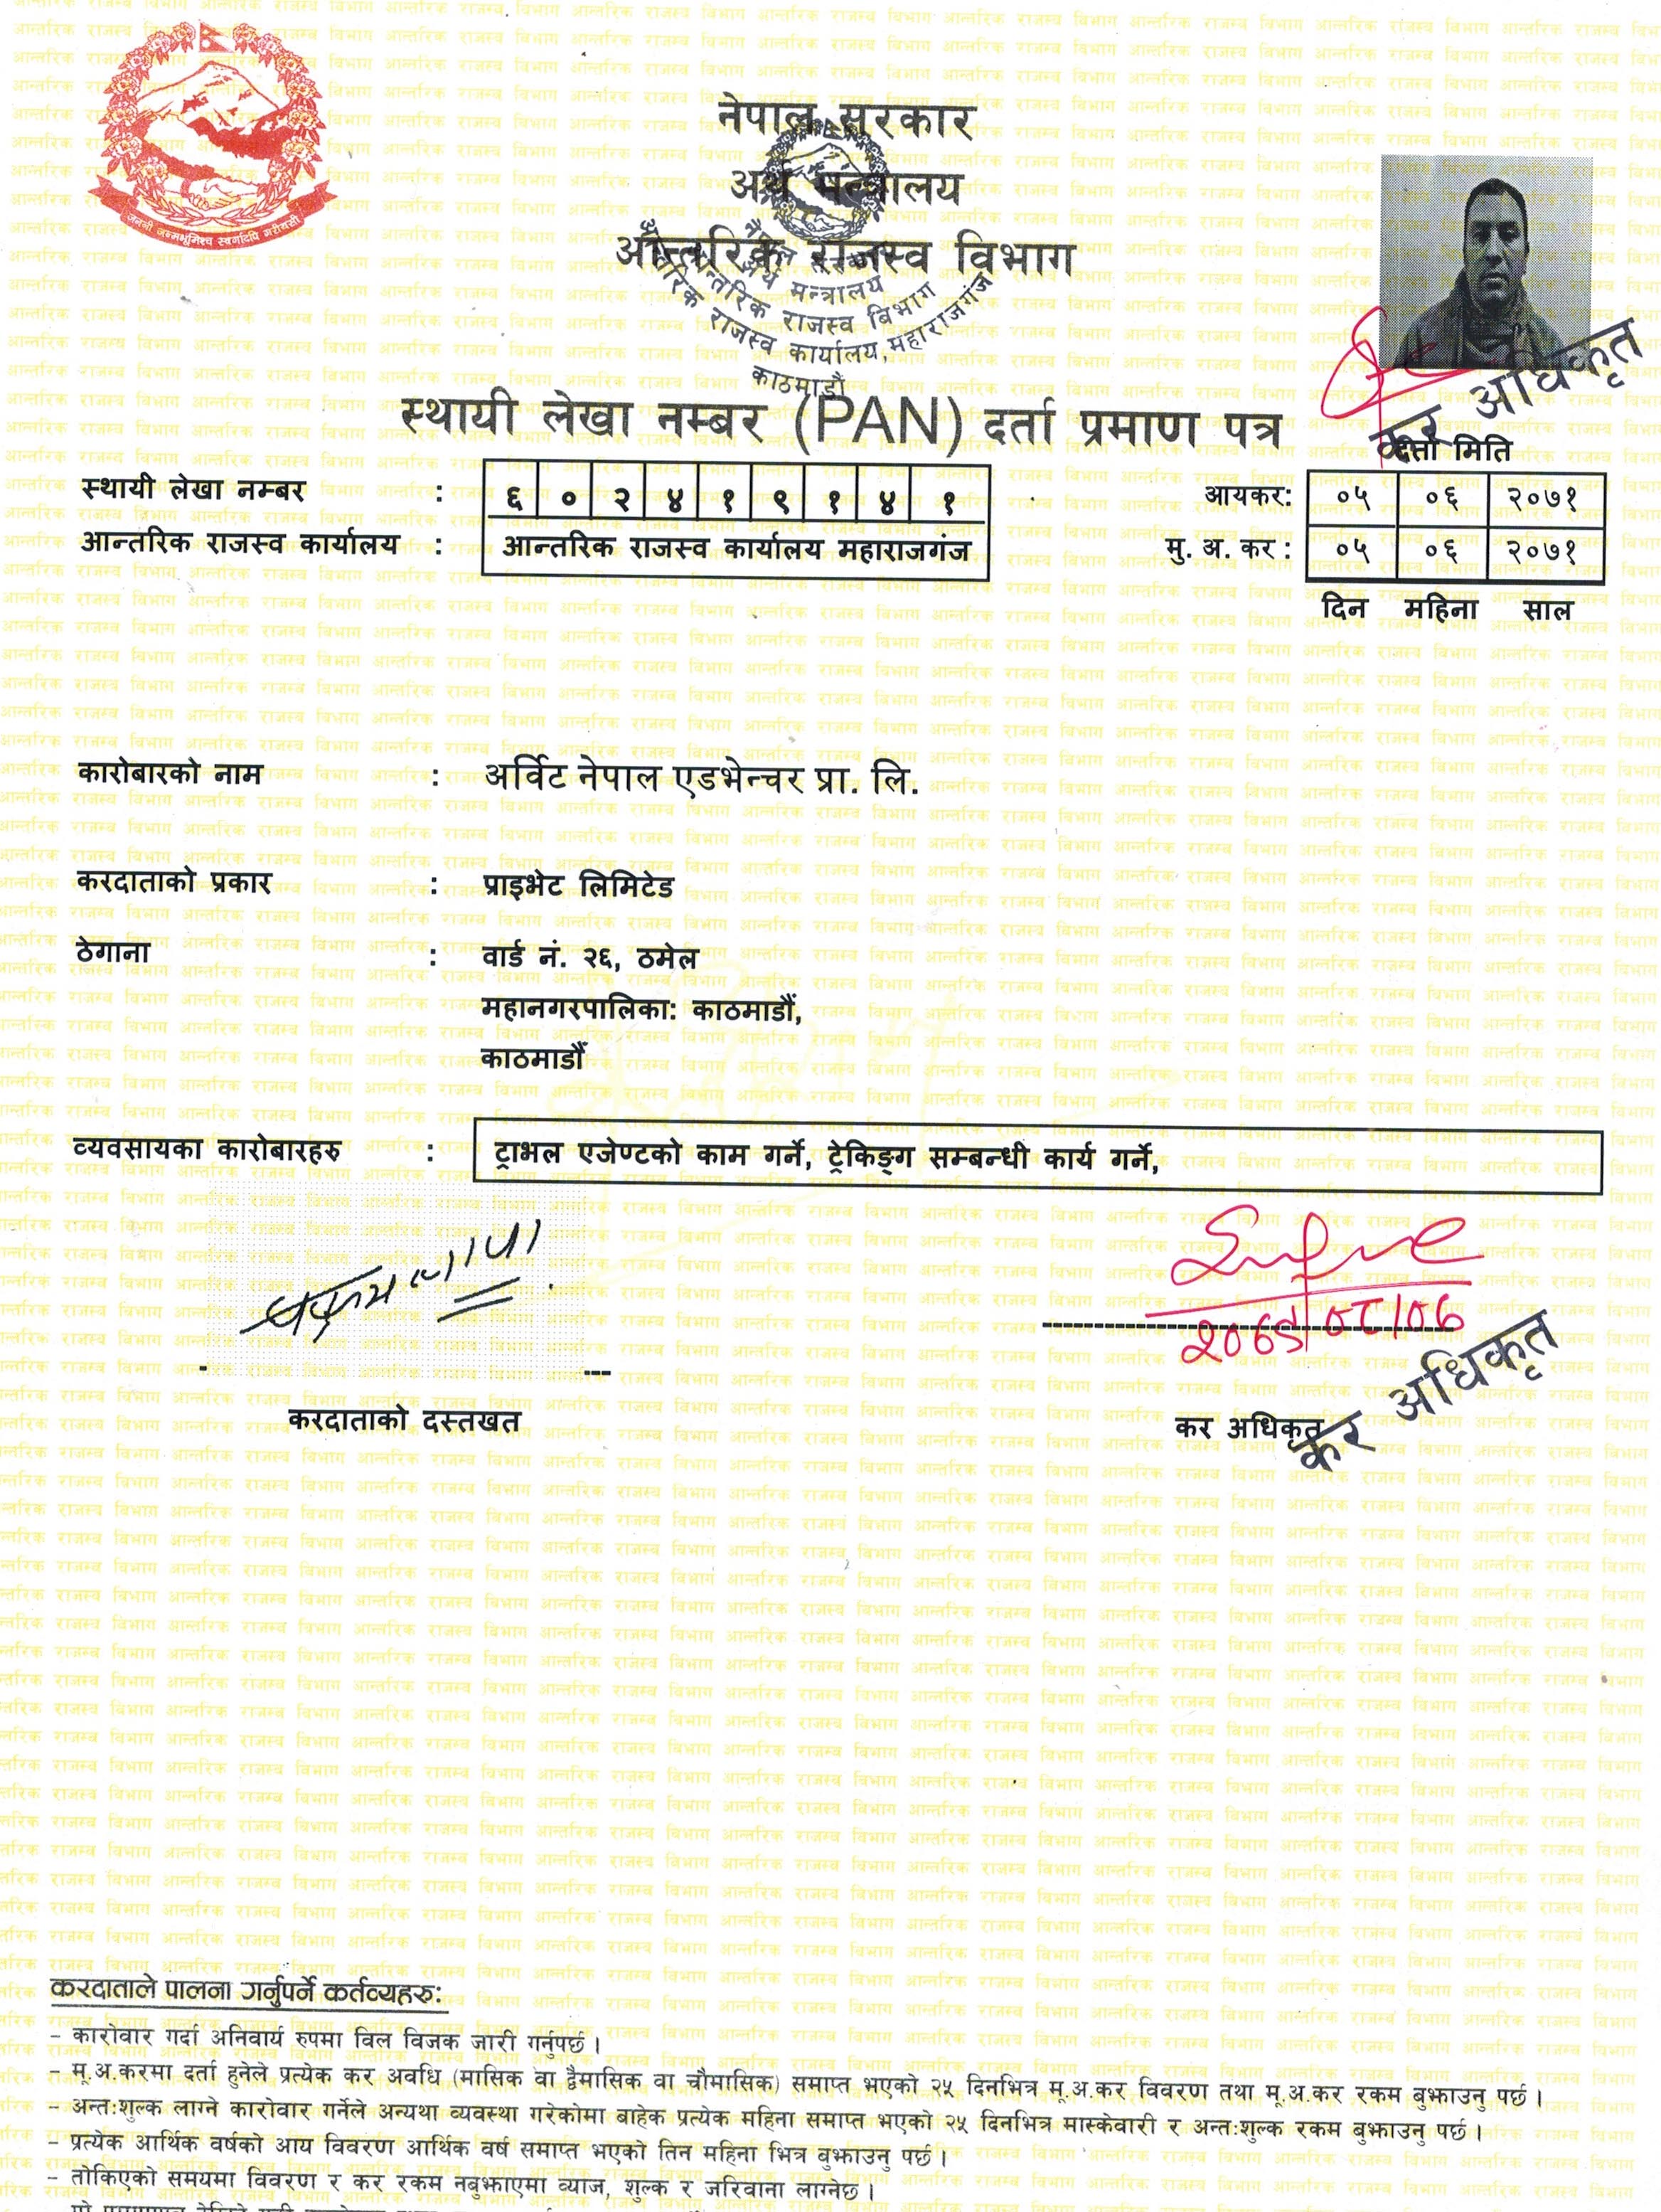 जननी जन्मभूमिश्च स्वर्गादपि गरीयसी
नेपाल सरकार
अर्थ मन्त्रालय
आन्तरिक राजस्व विभाग
नेपाल सरकार
अर्थ मन्त्रालय
आन्तरिक राजस्व विभाग
आन्तरिक राजस्व कार्यालय, महाराजगंज
काठमाडौं
कर अधिकृत
स्थायी लेखा नम्बर (PAN) दर्ता प्रमाण पत्र
दर्ता मिति
स्थायी लेखा नम्बर : ६ ० २ ४ १ ९ १ ४ १
आयकर: ०५ ०६ २०७१
आन्तरिक राजस्व कार्यालय : आन्तरिक राजस्व कार्यालय महाराजगंज
मु. अ. कर : ०५ ०६ २०७१
दिन महिना साल
कारोबारको नाम : अर्विट नेपाल एडभेन्चर प्रा. लि.
करदाताको प्रकार : प्राइभेट लिमिटेड
ठेगाना : वार्ड नं. २६, ठमेल
महानगरपालिका: काठमाडौं,
काठमाडौं
व्यवसायका कारोबारहरु : ट्राभल एजेण्टको काम गर्ने, ट्रेकिङ्ग सम्बन्धी कार्य गर्ने,
करदाताको दस्तखत
कर अधिकृत
कर अधिकृत
करदाताले पालना गर्नुपर्ने कर्तव्यहरु:
- कारोवार गर्दा अनिवार्य रुपमा विल विजक जारी गर्नुपर्छ ।
- मू.अ.करमा दर्ता हुनेले प्रत्येक कर अवधि (मासिक वा द्वैमासिक वा चौमासिक) समाप्त भएको २५ दिनभित्र मू.अ.कर विवरण तथा मू.अ.कर रकम बुझाउनु पर्छ ।
- अन्त:शुल्क लाग्ने कारोवार गर्नेले अन्यथा व्यवस्था गरेकोमा बाहेक प्रत्येक महिना समाप्त भएको २५ दिनभित्र मास्केवारी र अन्त:शुल्क रकम बुझाउनु पर्छ ।
- प्रत्येक आर्थिक वर्षको आय विवरण आर्थिक वर्ष समाप्त भएको तिन महिना भित्र बुझाउनु पर्छ ।
- तोकिएको समयमा विवरण र कर रकम नबुझाएमा व्याज, शुल्क र जरिवाना लाग्नेछ ।